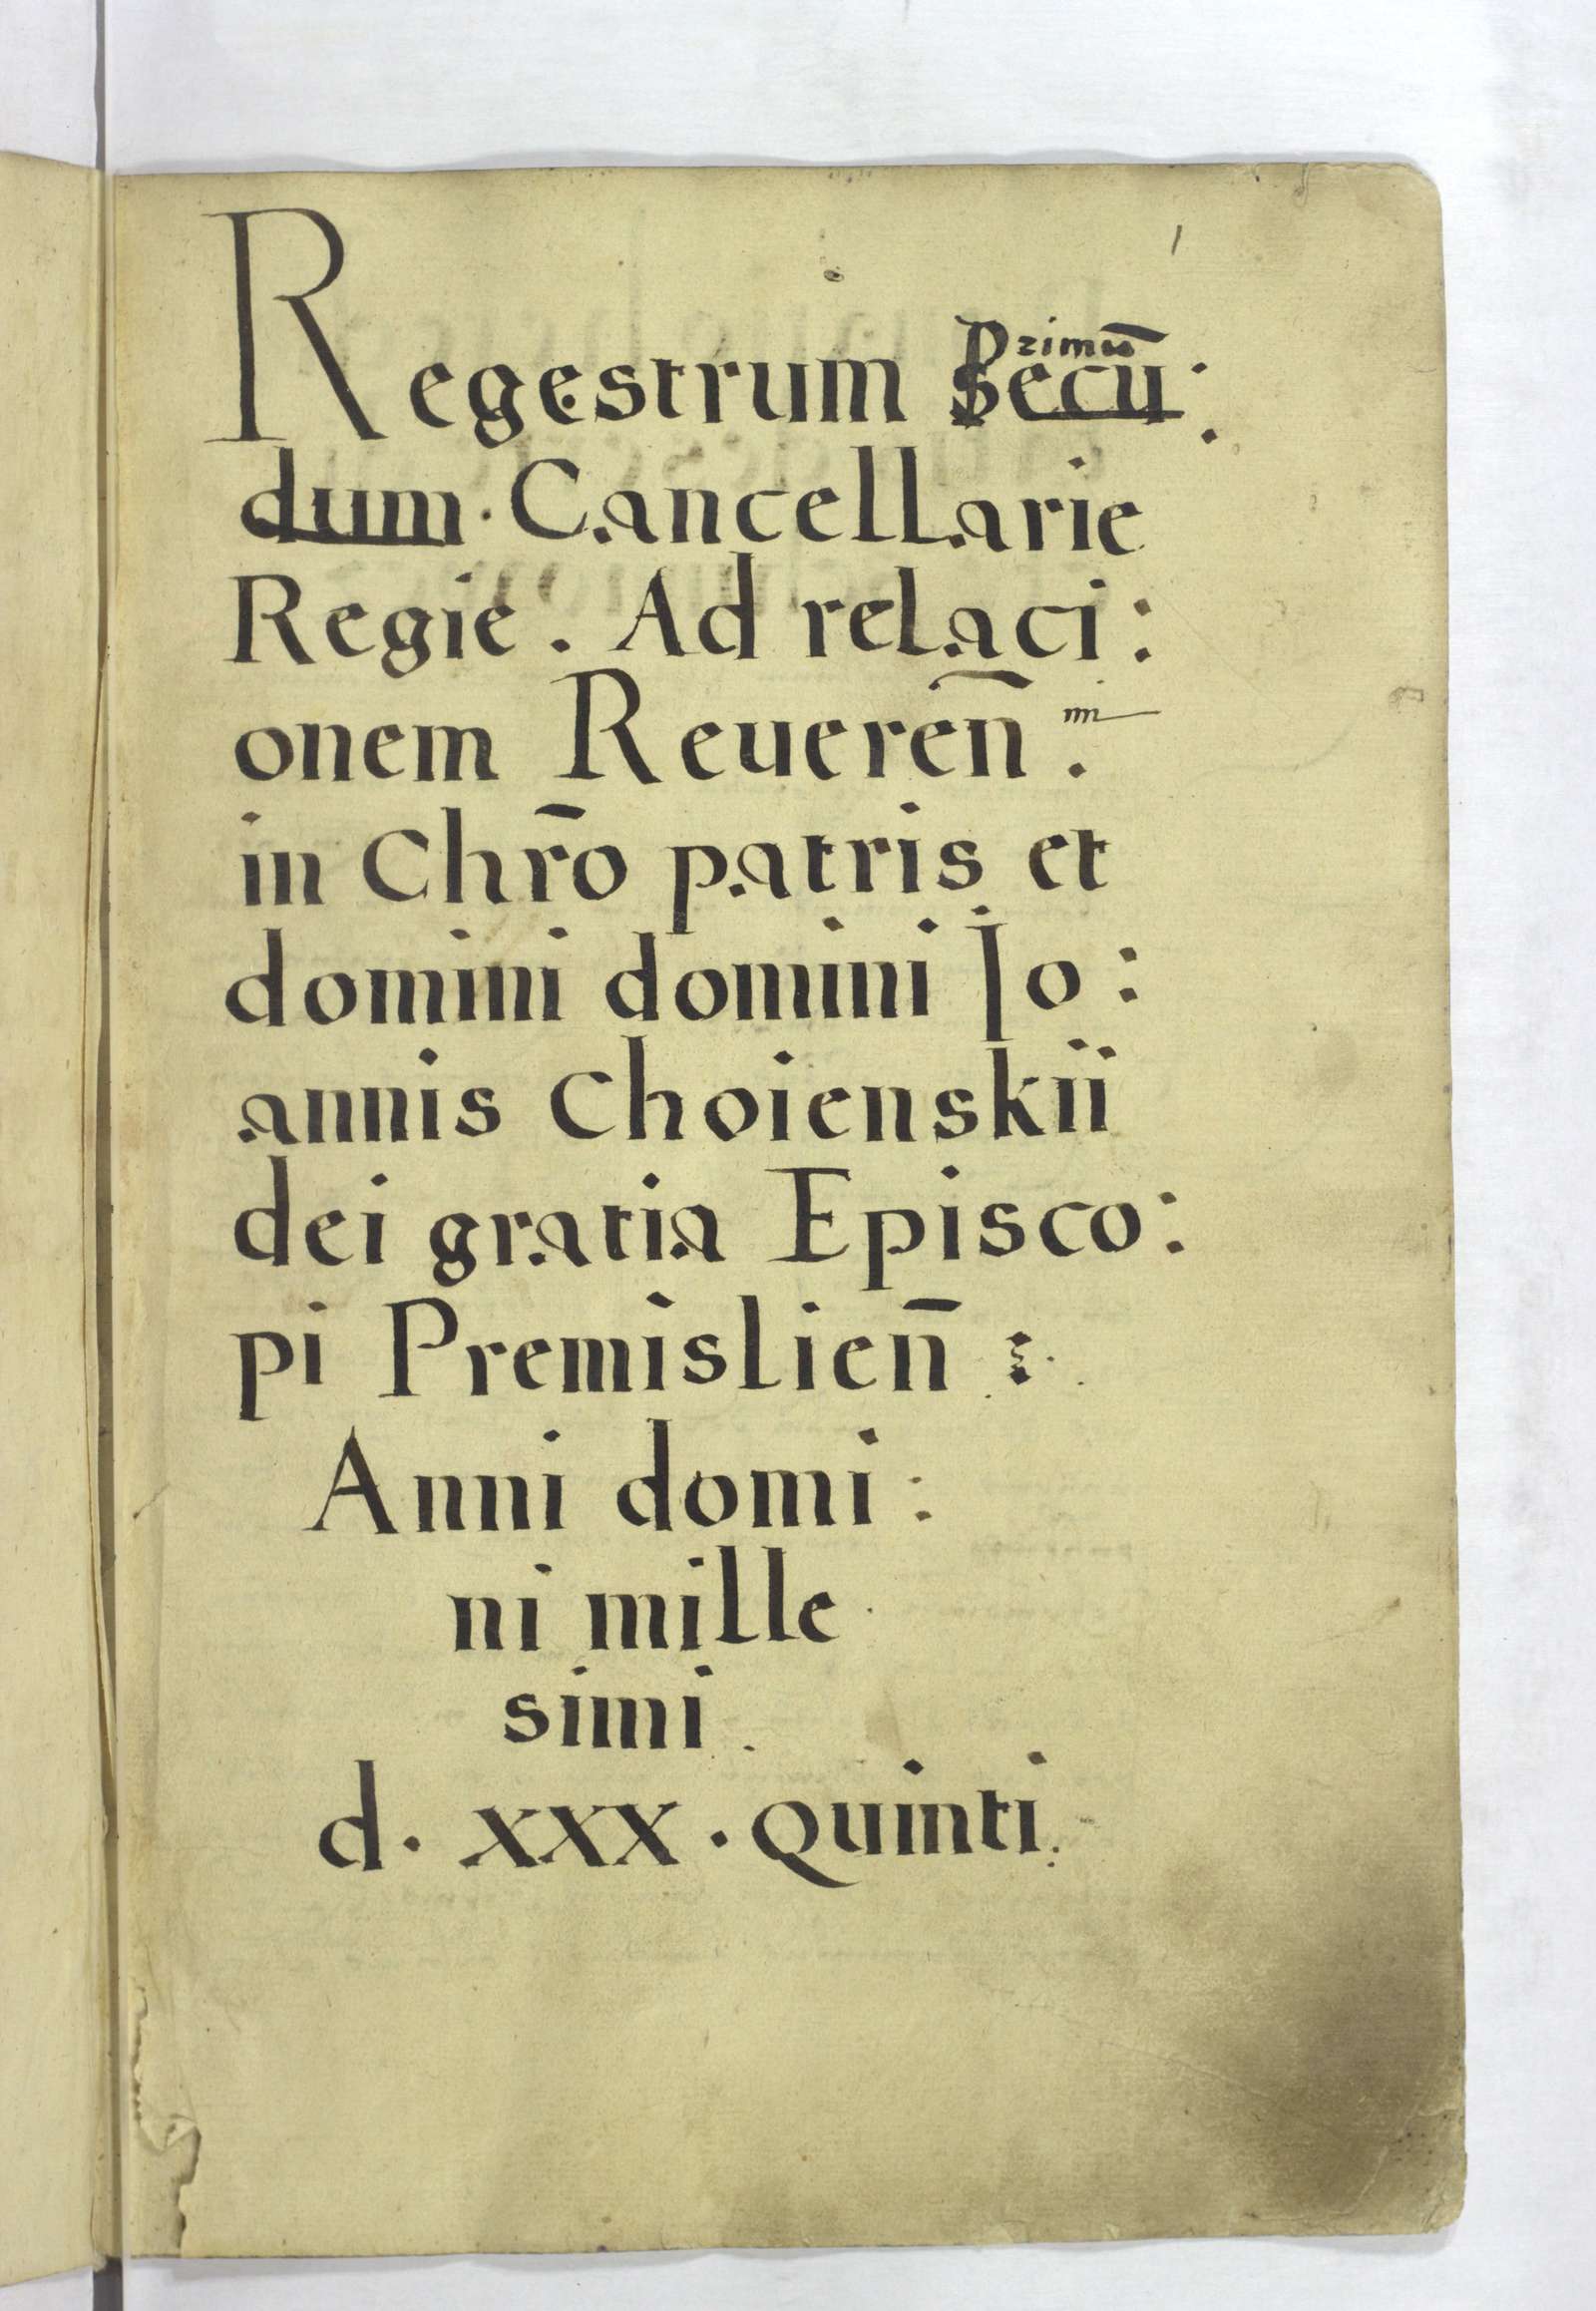 1
Primū
Regestrum Secū:
dum. Cancellarie
Regie. Ad relaci:
onem Reuereñ.mi
in Chr̄o patris et
domini domini Jo:
annis Choienskii
dei gratia Episco:
pi Premislieñ :
Anni domi:
ni mille
simi.
d. xxx. Quinti.